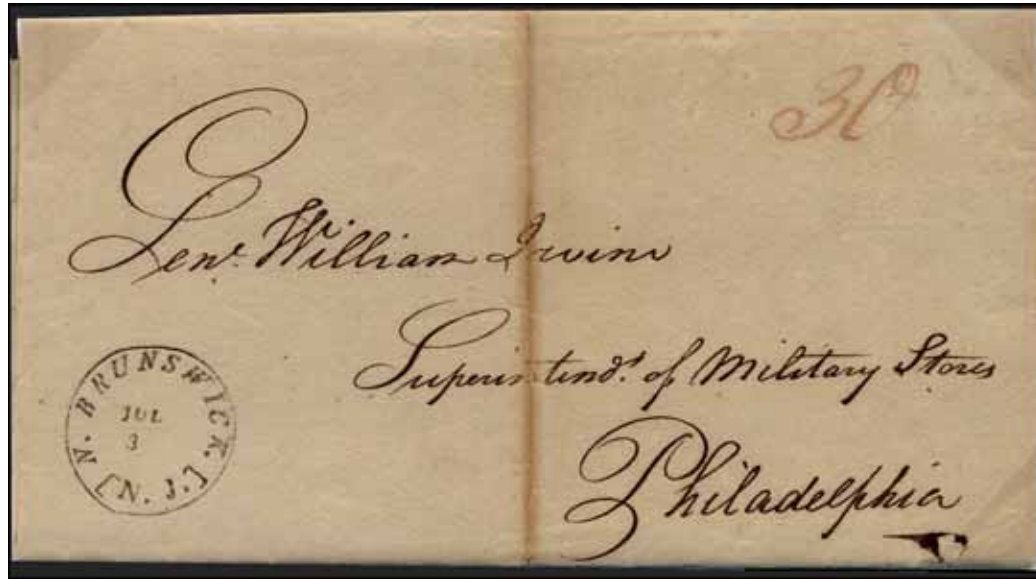 30
Genl. William Irvine
Superintendt. of Military Stores
Philadelphia
N. BRUNSWICK. [N. J.]
JUL
3